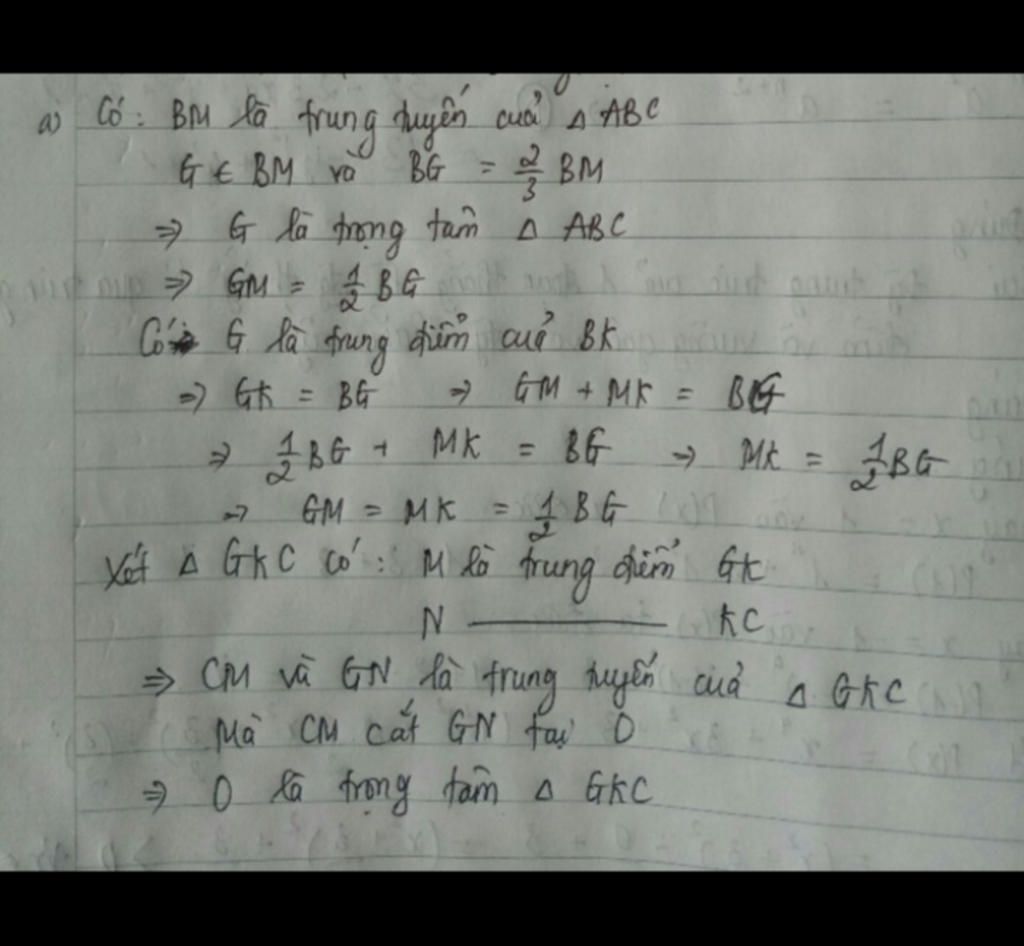 a) Có: BM là trung tuyến cuả △ ABC
G ∈ BM và BG = 2/3 BM
⇒ G là trọng tâm △ ABC
⇒ GM = 1/2 BG
Có G là trung điểm cuả BK
⇒ GK = BG ⇒ GM + MK = BG
⇒ 1/2 BG + MK = BG ⇒ MK = 1/2 BG
⇒ GM = MK = 1/2 BG
Xét △ GKC có: M là trung điểm GK
N ——— KC
⇒ CM và GN là trung tuyến cuả △ GKC
Mà CM cắt GN tại O
⇒ O là trọng tâm △ GKC